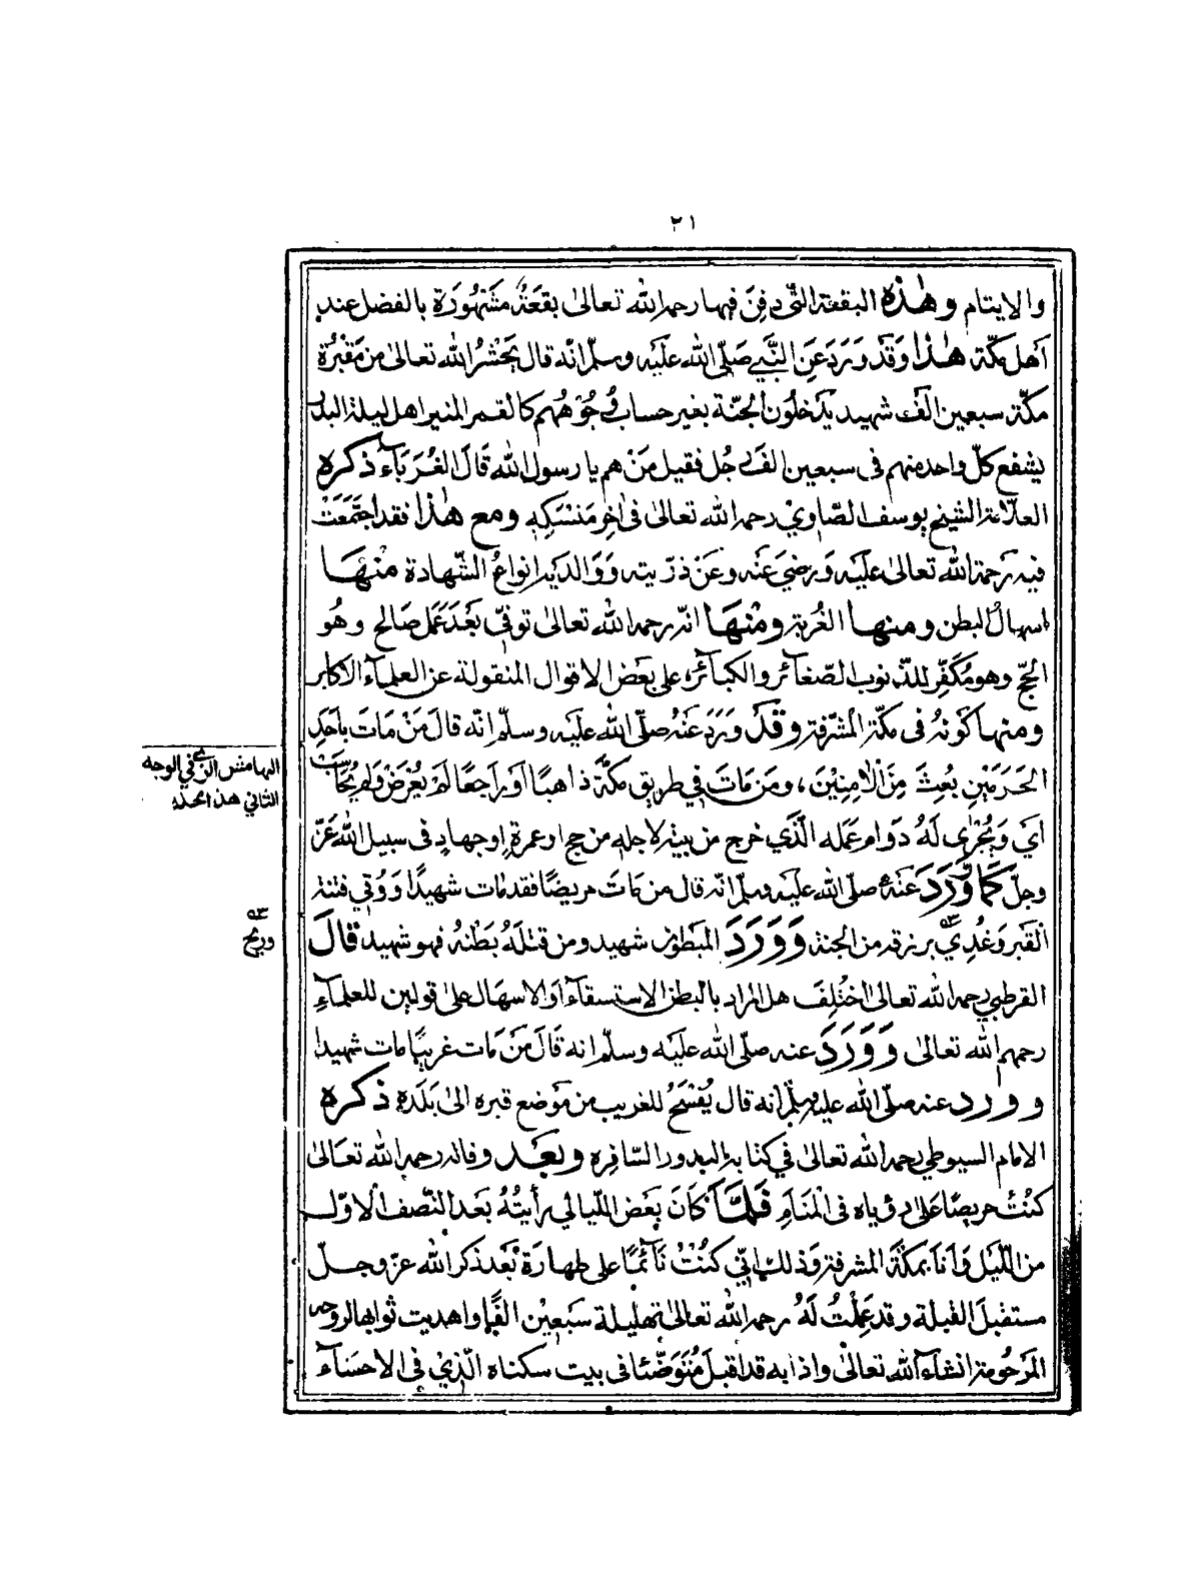 ٢١
والايتام وهٰذه البقعة التّى دفِنَ فيها رحمه الله تعالىٰ بقعَةٌ مشَهُورَة بالفضل عند
اَهل مكّة هٰذا وَقَد وَرَدَ عَنِ النَّبي صَلّى الله عَليَه وسلّم انّه قال يَحشُرُ الله تعالىٰ من مَقبُرة
مكّة سبعين الفَ شهيد يَدخلُون الجنّة بغير حساب وُجُوهُهم كالقمر المنير اهل ليلة البدر
يشفع كلّ واحد منهم فى سبعين الفَ رجُل فقيل مَنْ هم يا رسول الله قَالَ الغُرَبَآء ذكره
العلاّمة الشيخ يوسف الصّاويْ رحمه الله تعالىٰ فى اٰخِر مَنسَكِهِ ومع هٰذا فقد اجتمَعَتْ
فيه رَحمة الله تعالىٰ عليَه وَرضيَ عَنه وعَنْ ذرّيته وَوَالديه انواعُ الشّهادة منْهَا
اسهالُ البطن ومنها الغُربة ومْنهَا انّه رحمه الله تعالىٰ توفّي بَعْدَ عَمَل صَالح وهُو
الحجّ وهو مُكَفّر للذّنوب الصّغآئر والكبآئر، على بَعْض الاقوال المنقولة عن العلمآء الاكابر
ومنها كَونهُ فى مكّة المشّرفة وقَدْ وَرَدَ عَنْهُ صلّى الله عليَه وسلّم انّه قالَ مَنْ مَاتَ باَحَدِ
الحَرَمَيْنِ بُعِثَ مِنَ الْاٰمِنِيْنَ، ومَن مَاتَ في طريق مكَّة ذاهبًا اَو رَاجعًا لَمْ يُعْرَضْ وَلم يُحَاسَبْ
اي وَيُجْرٰى لَهُ دَوام عَمَله الّذَي خرج من بيته لاجله من حج او عمرةٍ او جهادٍ فى سبيل الله عَزّ
وجلّ كَمَا وَرَدَ عَنْهُ صلّى الله عليه وسلم انّه قال من مَاتَ مريضًا فقد مَات شهيدًا وَوُقي فتنة
القَبر وَغُدِيْ برزقه من الجنة وَوَرَدَ المَبْطون شهيد ومن قتلَهُ بَطنُهُ فهو شهيد قَالَ
القرطبي رحمه الله تعالىٰ اختُلِفَ هل المراد بالبطن الاستسقآء اَو الاسهَال على قولين للعلمآءِ
رحمهم الله تعالىٰ وَوَرَدَ عنه صلّى الله عَليَه وسلّم انه قَالَ مَنْ مَات غريبًا مات شهيدا
وورد عنه صلّى الله عليه وسلّم انه قال يُفسَحُ للغريب من مَوضع قبره الى بَلَدَهِ ذكره
الامام السيوطي رحمه الله تعالىٰ في كتابه البدور السّافِره وبَعْد وفاته رحمه الله تعَالىٰ
كنُتُ حريصًا عَلى رؤياه فى المْنَامِ فَلمَّا كَانَ بَعْض الليالي رأيتُهُ بَعد النّصف الاوّل
من اللّيَل وَاَنَا بمَكّة المشرفة وَذلك انّي كُنْتُ نَآئمًا على طهارَة بَعْدَ ذكر الله عزّ وجلّ
مستقبلَ القبلة وقد عَمِلْتُ لَهُ رحمه الله تعالىٰ تهليلة سَبَعيْن الفًا واهديت ثوابها لروحه
المرَحُومة انشآء الله تعالىٰ واذا به قد اقبلَ مُتَوَضّئا فى بيت سكناه الّذيْ في الاحسَآء
الهامش الذي في الوجه
الثاني هذا محله
صح
وريح